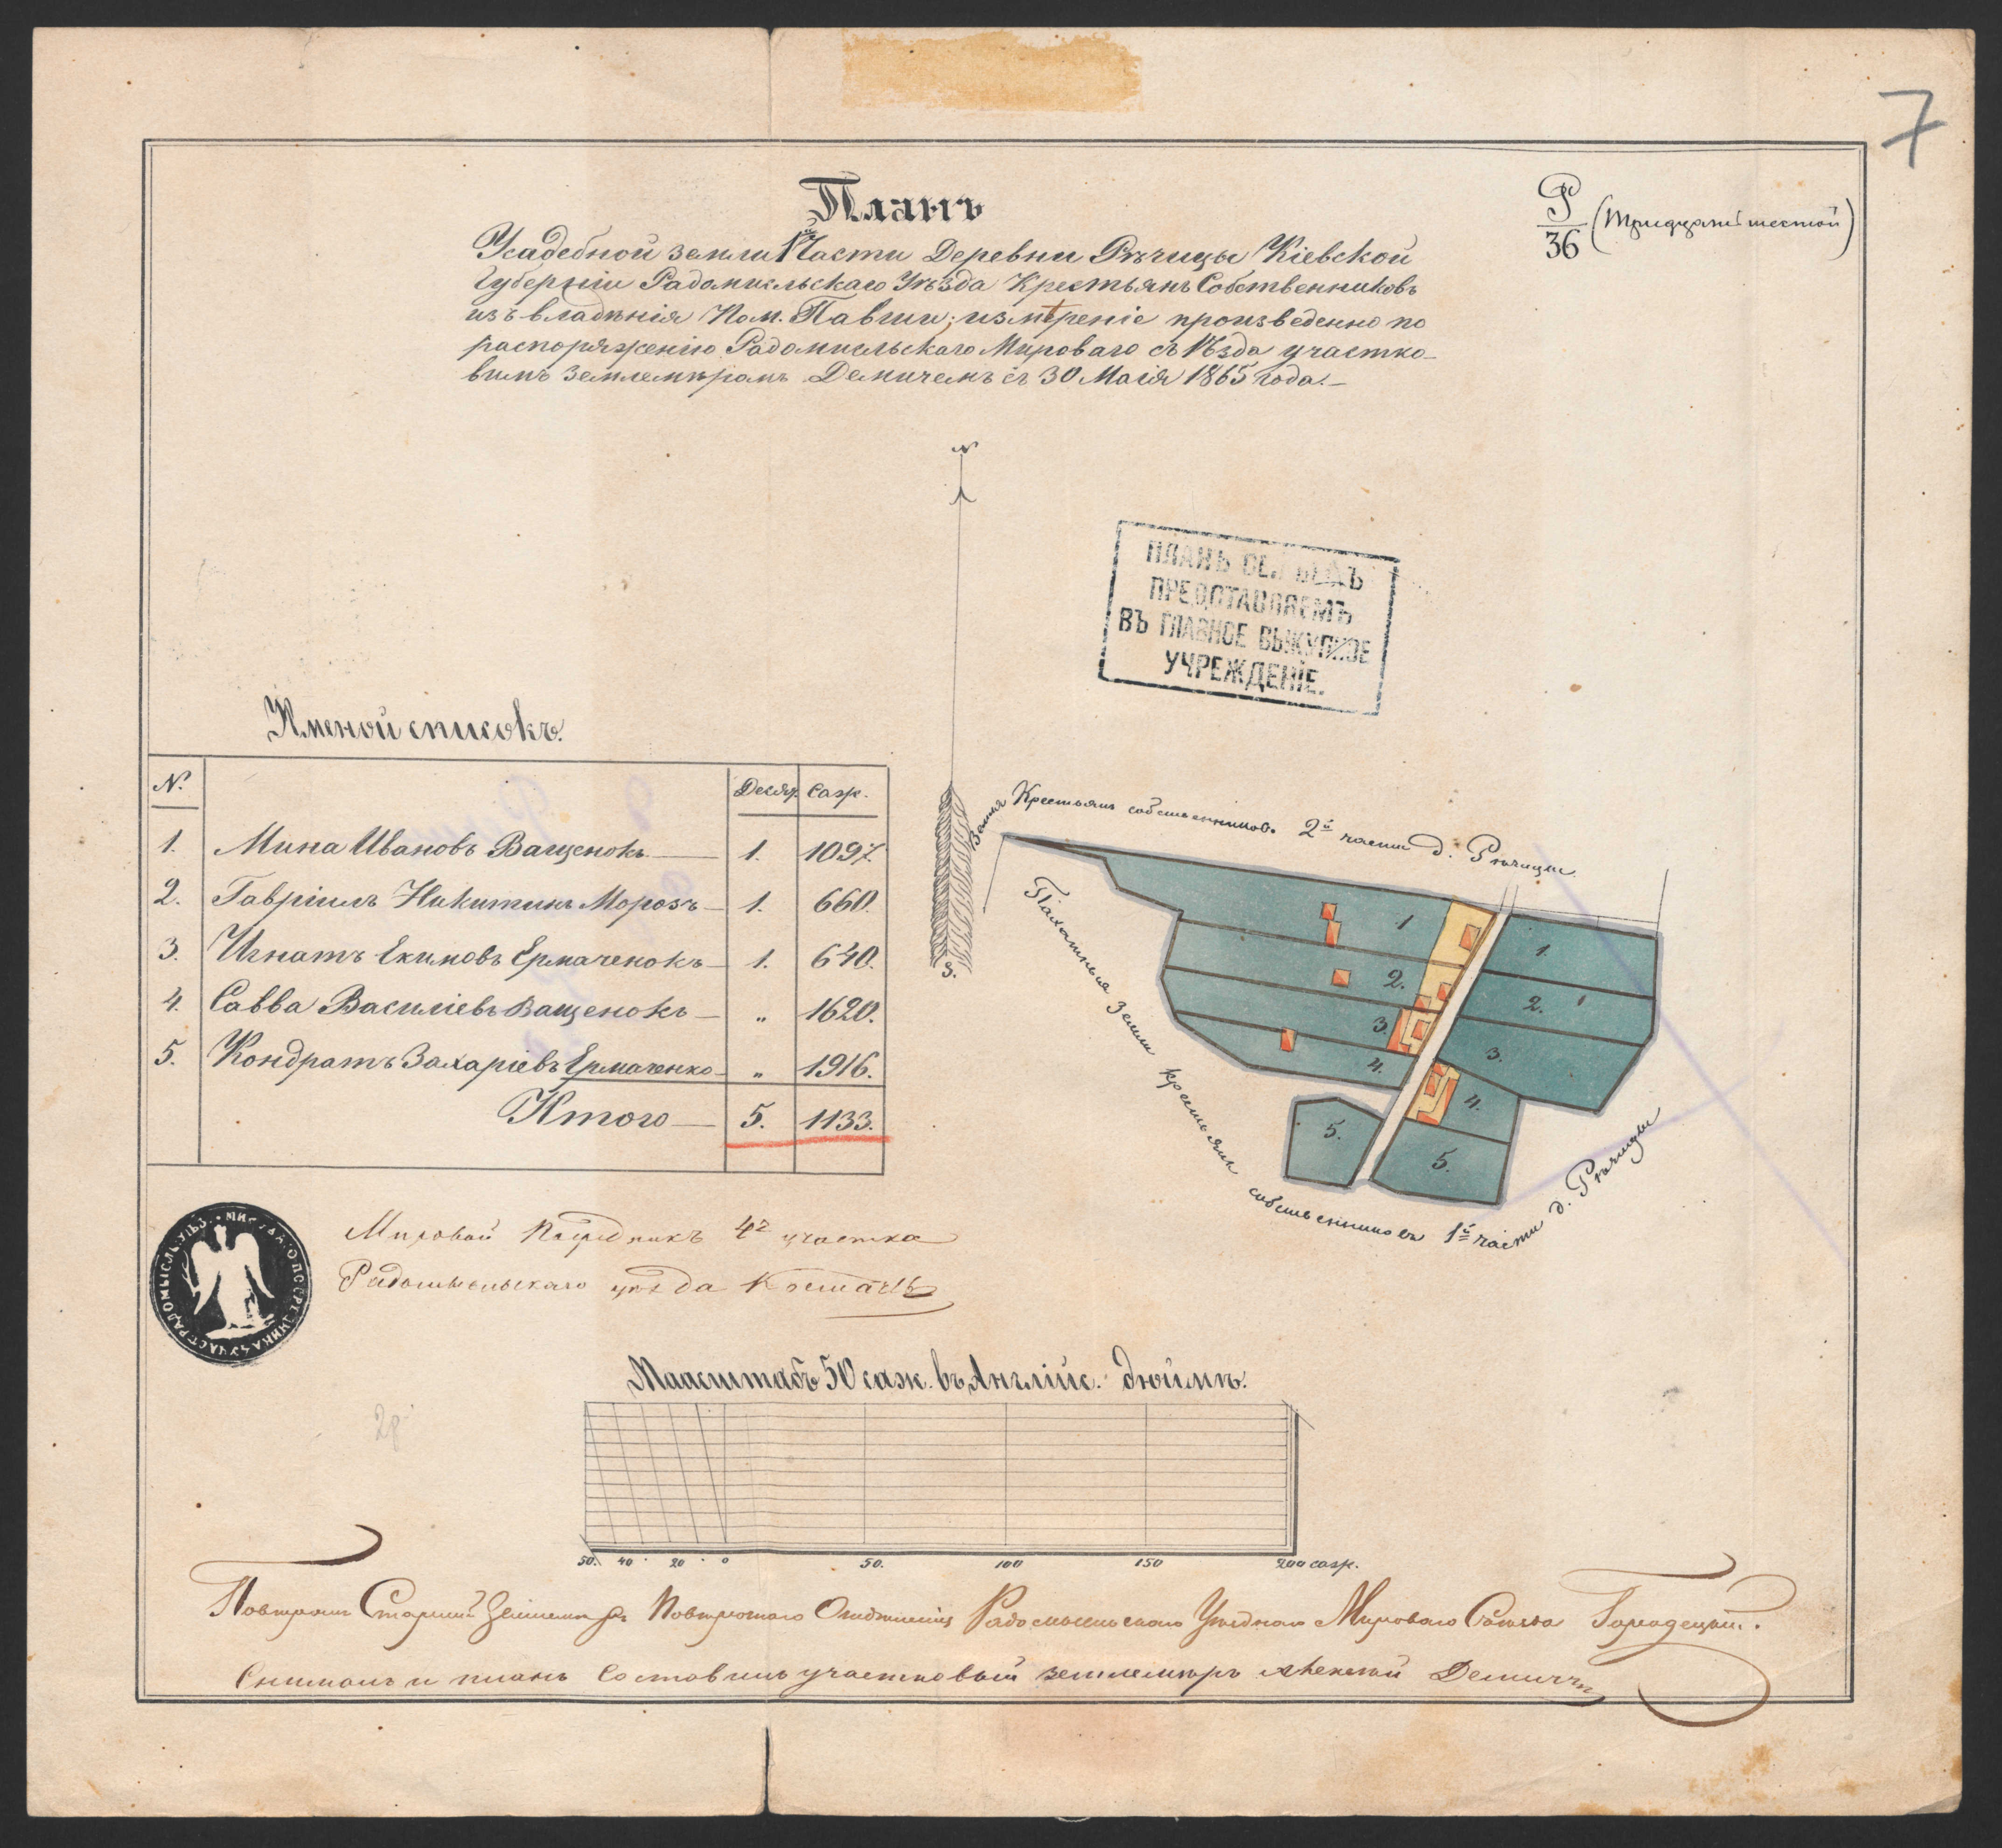 7
Р/36 (Тридцать шестой)
Планъ
Усадебной земли 1й Части Деревни Рѣчицы Кіевской
Губерніи Радомысльскаго Уѣзда Крестьянъ Собственниковъ
изъ владѣнія Пом. Павши; измѣреніе произведенно по
распоряженію Радомысльскаго Мироваго съѣзда участко-
вымъ Землемѣромъ Демичемъ съ 30 Маія 1865 года.
N
ПЛАНЪ СЕЙ БЫЛЪ
ПРЕДСТАВЛЯЕМЪ
ВЪ ГЛАВНОЕ ВЫКУПНОЕ
УЧРЕЖДЕНІЕ.
Именой списокъ.
N. Десят. Саж.
1. Мина Ивановъ Ващенокъ 1. 1097.
2. Гавріилъ Никитинъ Морозъ 1. 660.
3. Игнатъ Екимовъ Ермаченокъ 1. 640.
4. Савва Василіевъ Ващенокъ „ 1620.
5. Кондратъ Захаріевъ Ермаченко „ 1916.
Итого 5. 1133.
S.
Земля Крестьянъ собственниковъ 2й части д. Рѣчицы.
Пахатныя земли крестьянъ собственниковъ 1й части д. Рѣчицы
1
1.
2.
2.
3.
3.
4.
4.
5.
5.
Мировой Посредникъ 4го участка
Радомысльскаго уѣзда
Маасштабъ 50 саж. въ Англійс. дюймѣ.
50. 40 20 0 50. 100 150 200 саж.
Старшій Землемѣръ Радомысльскаго Уѣзднаго Мироваго Съѣзда
Снималъ и планъ Составилъ участковый землемѣръ Алексѣй Демичъ